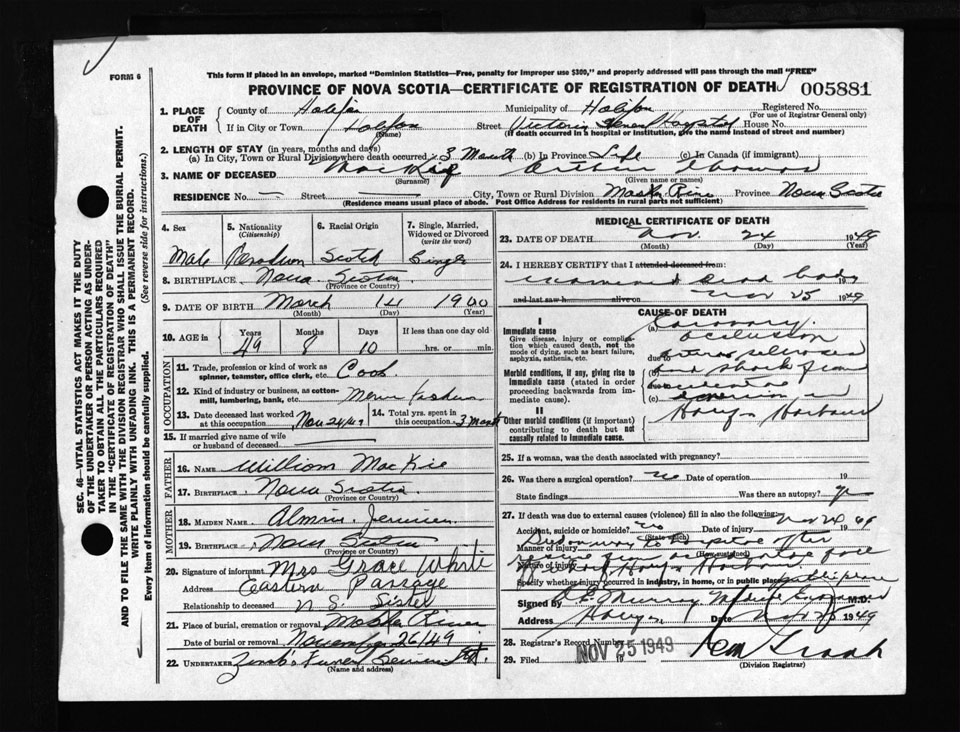 FORM 6
This form if placed in an envelope, marked "Dominion Statistics—Free, penalty for improper use $300," and properly addressed will pass through the mail "FREE"
PROVINCE OF NOVA SCOTIA—CERTIFICATE OF REGISTRATION OF DEATH 005881
1. PLACE OF DEATH County of Halifax Municipality of Halifax Registered No.
(For use of Registrar General only)
If in City or Town Halifax Street Victoria General Hospital House No.
(Name) (If death occurred in a hospital or institution, give the name instead of street and number)
2. LENGTH OF STAY (in years, months and days)
(a) In City, Town or Rural Division where death occurred 3 Month (b) In Province Life (c) In Canada (if immigrant)
3. NAME OF DECEASED MacKie Arthur Thomas
(Surname) (Given name or names)
RESIDENCE No. Street City, Town or Rural Division Province Nova Scotia
(Residence means usual place of abode. Post Office Address for residents in rural parts not sufficient)
4. Sex 5. Nationality (Citizenship) 6. Racial Origin 7. Single, Married, Widowed or Divorced (write the word)
Male Canadian Scotch Single
8. BIRTHPLACE Nova Scotia
(Province or Country)
9. DATE OF BIRTH March 14 1900
(Month) (Day) (Year)
10. AGE in Years Months Days If less than one day old
49 8 10 hrs. or min.
OCCUPATION
11. Trade, profession or kind of work as spinner, teamster, office clerk, etc. Cook
12. Kind of industry or business, as cotton-mill, lumbering, bank, etc.
13. Date deceased last worked at this occupation Nov 24/49 14. Total yrs. spent in this occupation 3 Month
15. If married give name of wife or husband of deceased
FATHER
16. NAME William MacKie
17. BIRTHPLACE Nova Scotia
(Province or Country)
MOTHER
18. MAIDEN NAME
19. BIRTHPLACE Nova Scotia
(Province or Country)
20. Signature of informant Mrs Grace White
Address Eastern Passage
Relationship to deceased N S. Sister
21. Place of burial, cremation or removal River
Date of burial or removal November 26/49
22. UNDERTAKER Funeral Service
(Name and address)
MEDICAL CERTIFICATE OF DEATH
23. DATE OF DEATH Nov. 24 1949
(Month) (Day) (Year)
24. I HEREBY CERTIFY that I attended deceased from:
examined dead body 19
and last saw h alive on Nov 25 1949
CAUSE OF DEATH
I
Immediate cause
Give disease, injury or complication which caused death, not the mode of dying, such as heart failure, asphyxia, asthenia, etc.
(a) Coronary occlusion
due to
Morbid conditions, if any, giving rise to immediate cause (stated in order proceeding backwards from immediate cause).
and shock from accidental
(c) immersion in
II
Other morbid conditions (if important) contributing to death but not causally related to immediate cause.
Halifax Harbour
25. If a woman, was the death associated with pregnancy?
26. Was there a surgical operation? no Date of operation 19
State findings Was there an autopsy?
27. If death was due to external causes (violence) fill in also the following:
Accident, suicide or homicide? Date of injury Nov 24 1949
(State which)
Manner of injury
(How sustained)
Nature of injury
Specify whether injury occurred in industry, in home, or in public place public place
Signed by Murray M.D.
Address Halifax Date Nov 25 1949
28. Registrar's Record Number
29. Filed NOV 25 1949
19
(Division Registrar)
SEC. 46—VITAL STATISTICS ACT MAKES IT THE DUTY
OF THE UNDERTAKER OR PERSON ACTING AS UNDER-
TAKER TO OBTAIN ALL THE PARTICULARS REQUIRED
IN THE "CERTIFICATE OF REGISTRATION OF DEATH"
AND TO FILE THE SAME WITH THE DIVISION REGISTRAR WHO SHALL ISSUE THE BURIAL PERMIT.
WRITE PLAINLY WITH UNFADING INK. THIS IS A PERMANENT RECORD.
Every item of information should be carefully supplied. (See reverse side for instructions.)